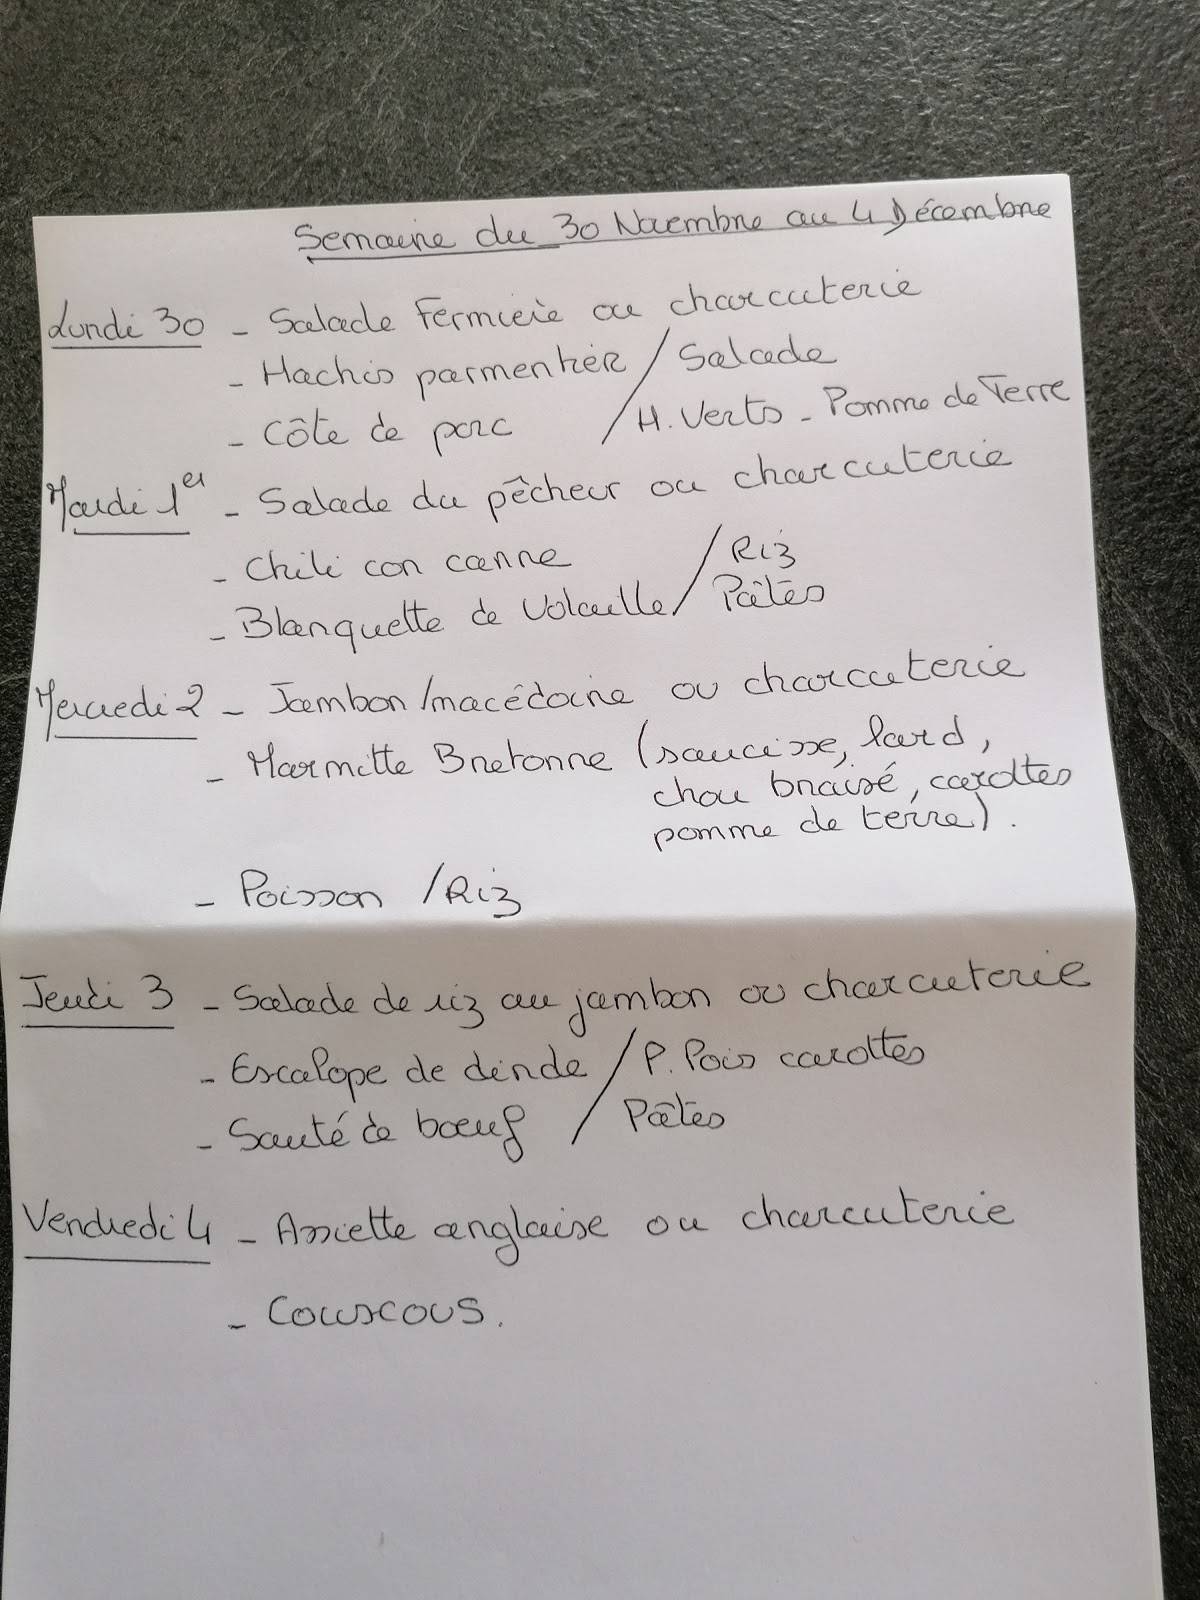 Semaine du 30 Novembre au 4 Décembre
Lundi 30 - Salade Fermière ou charcuterie
- Hachis parmentier / Salade
- Côte de porc / H. Verts - Pomme de Terre
Mardi 1er - Salade du pêcheur ou charcuterie
- Chili con carne / Riz
- Blanquette de Volaille / Pâtes
Mercredi 2 - Jambon/macédoine ou charcuterie
- Marmitte Bretonne (saucisse, lard,
chou braisé, carottes
pomme de terre).
- Poisson / Riz
Jeudi 3 - Salade de riz au jambon ou charcuterie
- Escalope de dinde / P. Pois carottes
- Sauté de bœuf / Pâtes
Vendredi 4 - Assiette anglaise ou charcuterie
- Couscous.